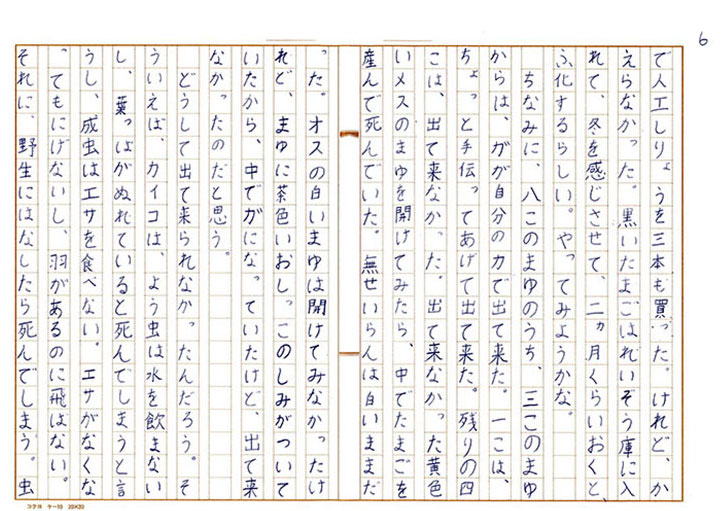 6
で人工しりょうを三本も買った。けれど、か
えらなかった。黒いたまごはれいぞう庫に入
れて、冬を感じさせて、二ヵ月くらいおくと、
ふ化するらしい。やってみようかな。
ちなみに、八このまゆのうち、三このまゆ
からは、ガが自分の力で出て来た。一こは、
ちょっと手伝ってあげて出て来た。残りの四
こは、出て来なかった。出て来なかった黄色
いメスのまゆを開けてみたら、中でたまごを
産んで死んでいた。無せいらんは白いままだ
った。オスの白いまゆは開けてみなかったけ
れど、まゆに茶色いおしっこのしみがついて
いたから、中でガになっていたけど、出て来
なかったのだと思う。
どうして出て来られなかったんだろう。そ
ういえば、カイコは、よう虫は水を飲まない
し、葉っぱがぬれていると死んでしまうと言
うし、成虫はエサを食べない。エサがなくな
ってもにげないし、羽があるのに飛ばない。
それに、野生にはなしたら死んでしまう。虫
コクヨ ケー10 20×20